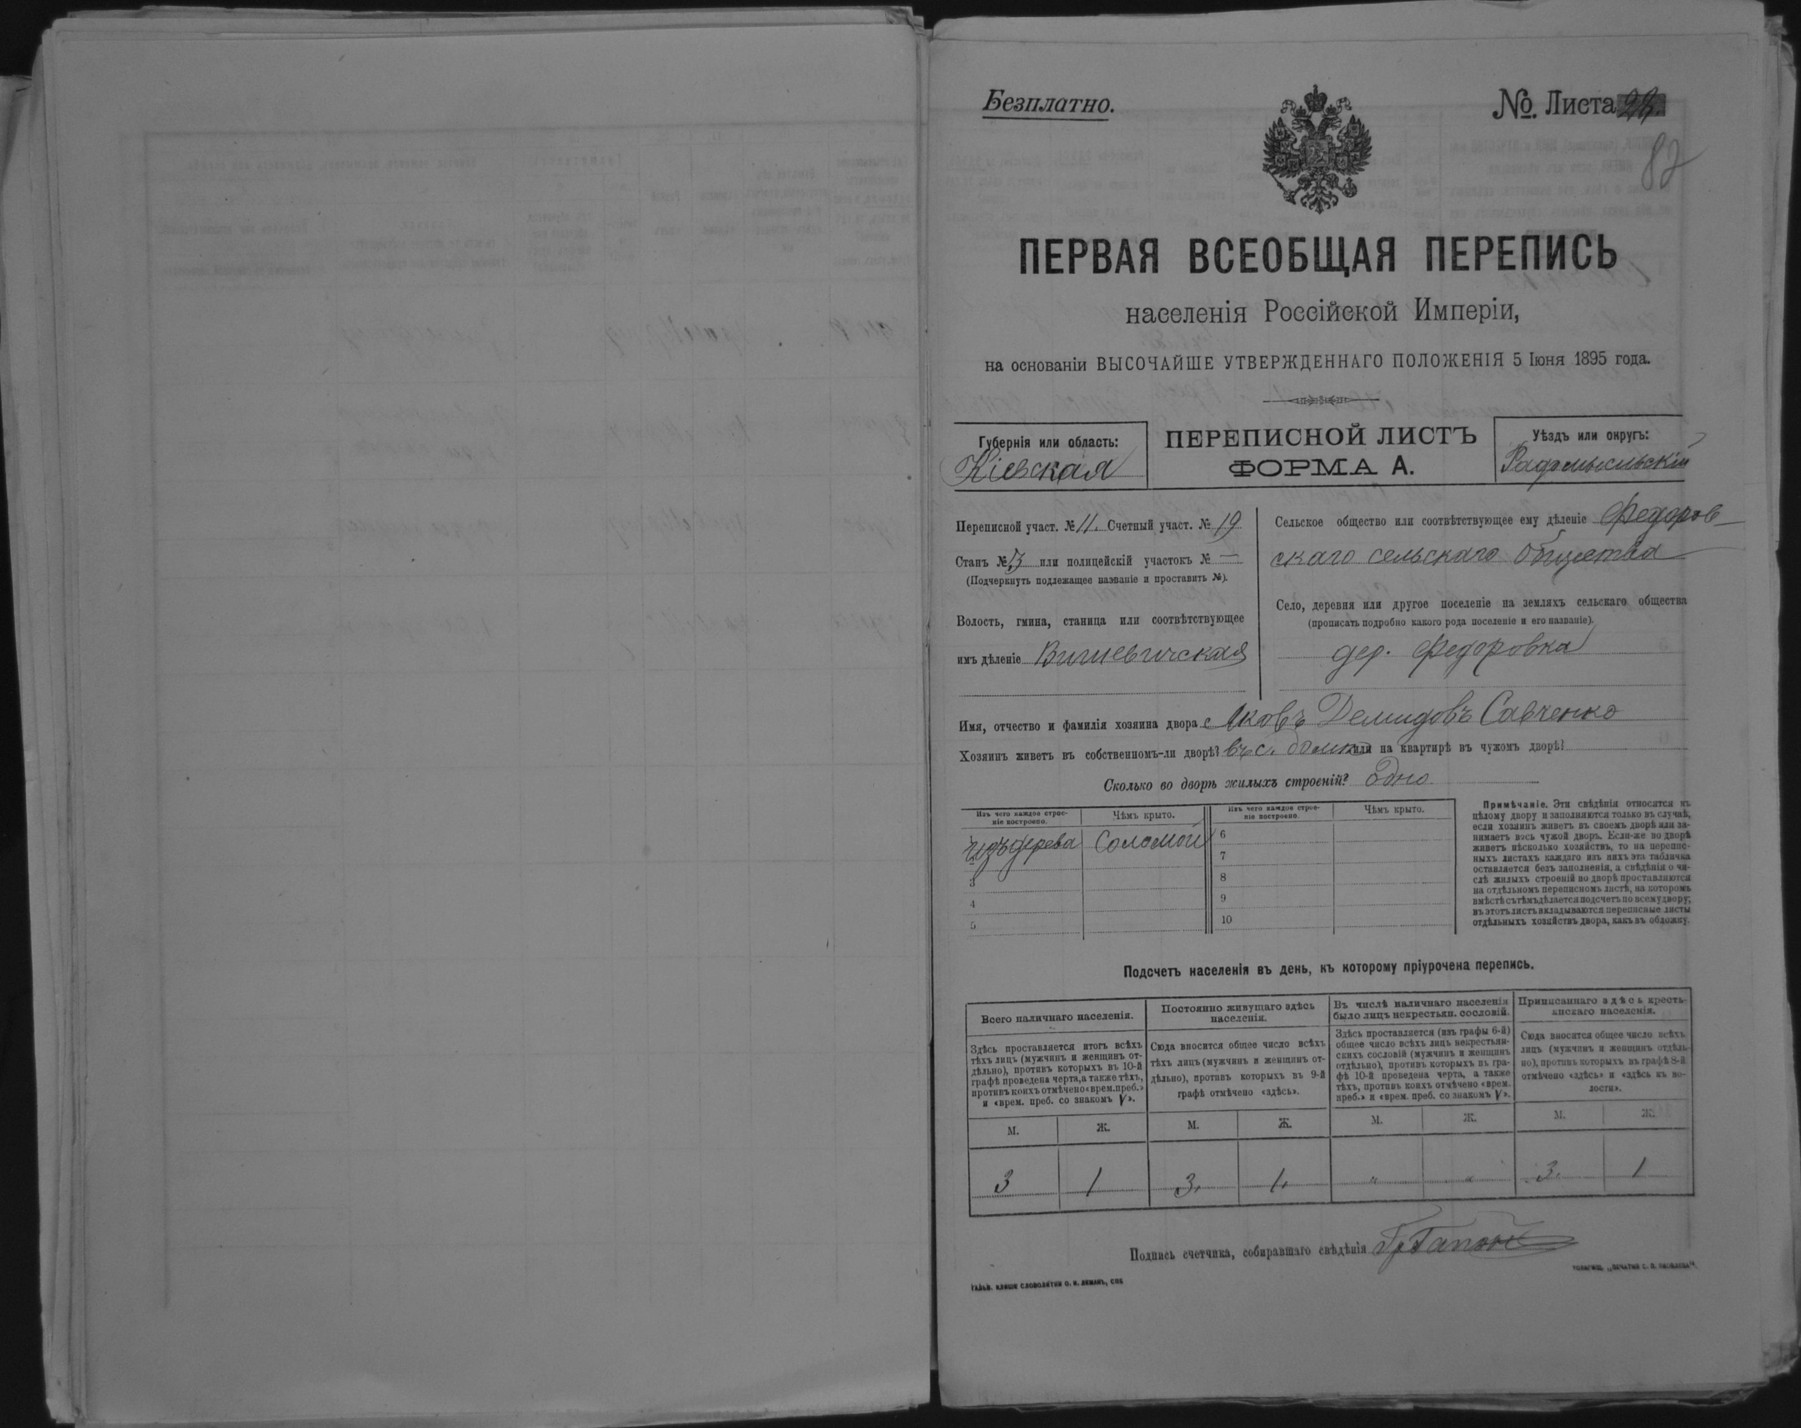 Безплатно.
№. Листа
82
ПЕРВАЯ ВСЕОБЩАЯ ПЕРЕПИСЬ
населенія Россійской Имперіи,
на основаніи ВЫСОЧАЙШЕ УТВЕРЖДЕННАГО ПОЛОЖЕНІЯ 5 Іюня 1895 года.
Губернія или область:
Кіевская
ПЕРЕПИСНОЙ ЛИСТЪ
ФОРМА А.
Уѣздъ или округъ:
Радомысльскій
Переписной участ. № 11. Счетный участ. № 19
Станъ № 3 или полицейскій участокъ № —
(Подчеркнуть подлежащее названіе и проставить №).
Волость, гмина, станица или соотвѣтствующее
имъ дѣленіе Вышевичская
Сельское общество или соотвѣтствующее ему дѣленіе Федоров-
скаго сельскаго общества
Село, деревня или другое поселеніе на земляхъ сельскаго общества
(прописать подробно какого рода поселеніе и его названіе).
дер. Федоровка
Имя, отчество и фамилія хозяина двора Яковъ Демидовъ Савченко
Хозяинъ живетъ въ собственномъ-ли дворѣ? въ с. домѣ или на квартирѣ въ чужомъ дворѣ?
Сколько во дворѣ жилыхъ строеній? Одно
Изъ чего каждое строе-
ніе построено.
Чѣмъ крыто.
Изъ чего каждое строе-
ніе построено.
Чѣмъ крыто.
изъ дерева Соломой
3
4
5
6
7
8
9
10
Примѣчаніе. Эти свѣдѣнія относятся къ
цѣлому двору и заполняются только въ случаѣ,
если хозяинъ живетъ въ своемъ дворѣ или за-
нимаетъ весь чужой дворъ. Если-же во дворѣ
живетъ нѣсколько хозяйствъ, то на перепис-
ныхъ листахъ каждаго изъ нихъ эта табличка
оставляется безъ заполненія, а свѣдѣнія о чи-
слѣ жилыхъ строеній во дворѣ проставляются
на отдѣльномъ переписномъ листѣ, на которомъ
вмѣстѣ съ тѣмъ дѣлается подсчетъ по всему двору;
въ этотъ листъ вкладываются переписные листы
отдѣльныхъ хозяйствъ двора, какъ въ обложку.
Подсчетъ населенія въ день, къ которому пріурочена перепись.
Всего наличнаго населенія.
Здѣсь проставляется итогъ всѣхъ
тѣхъ лицъ (мужчинъ и женщинъ от-
дѣльно), противъ которыхъ въ 10-й
графѣ проведена черта, а также тѣхъ,
противъ коихъ отмѣчено «врем. преб.»
и «врем. преб. со знакомъ V».
Постоянно живущаго здѣсь
населенія.
Сюда вносится общее число всѣхъ
тѣхъ лицъ (мужчинъ и женщинъ от-
дѣльно), противъ которыхъ въ 9-й
графѣ отмѣчено «здѣсь».
Въ числѣ наличнаго населенія
было лицъ некрестьян. сословій.
Здѣсь проставляется (изъ графы 6-й)
общее число всѣхъ лицъ некрестьян-
скихъ сословій (мужчинъ и женщинъ
отдѣльно), противъ которыхъ въ гра-
фѣ 10-й проведена черта, а также
тѣхъ, противъ коихъ отмѣчено «врем.
преб.» и «врем. преб. со знакомъ V».
Приписаннаго здѣсь кресть-
янскаго населенія.
Сюда вносится общее число всѣхъ
лицъ (мужчинъ и женщинъ отдѣль-
но), противъ которыхъ въ графѣ 8-й
отмѣчено «здѣсь» и «здѣсь въ во-
лости».
М. Ж. М. Ж. М. Ж. М. Ж.
3 1 3. 1. " " 3. 1
Подпись счетчика, собиравшаго свѣдѣнія
ГАЛЬВ. КЛИШЕ СЛОВОЛИТНИ О. И. ЛЕМАНЪ, СПБ.